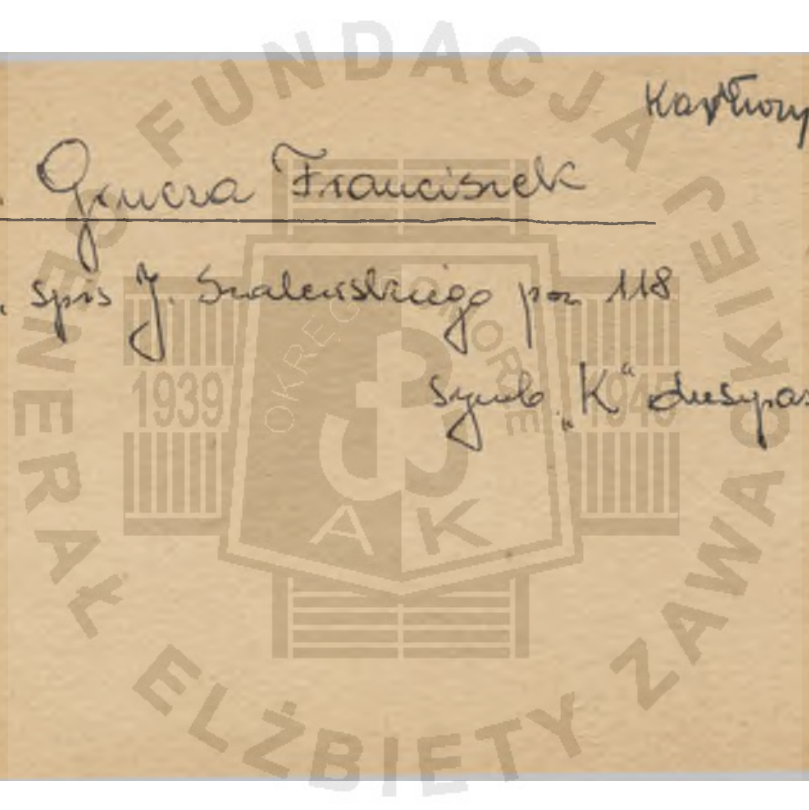 Kartuzy
. Grucza Franciszek
. spis J. Szalewskiego poz 118
symb. „K" duszpas
FUNDACJA GENERAŁ ELŻBIETY ZAWACKIEJ
OKRĘG POMORZE
1939 1945
AK